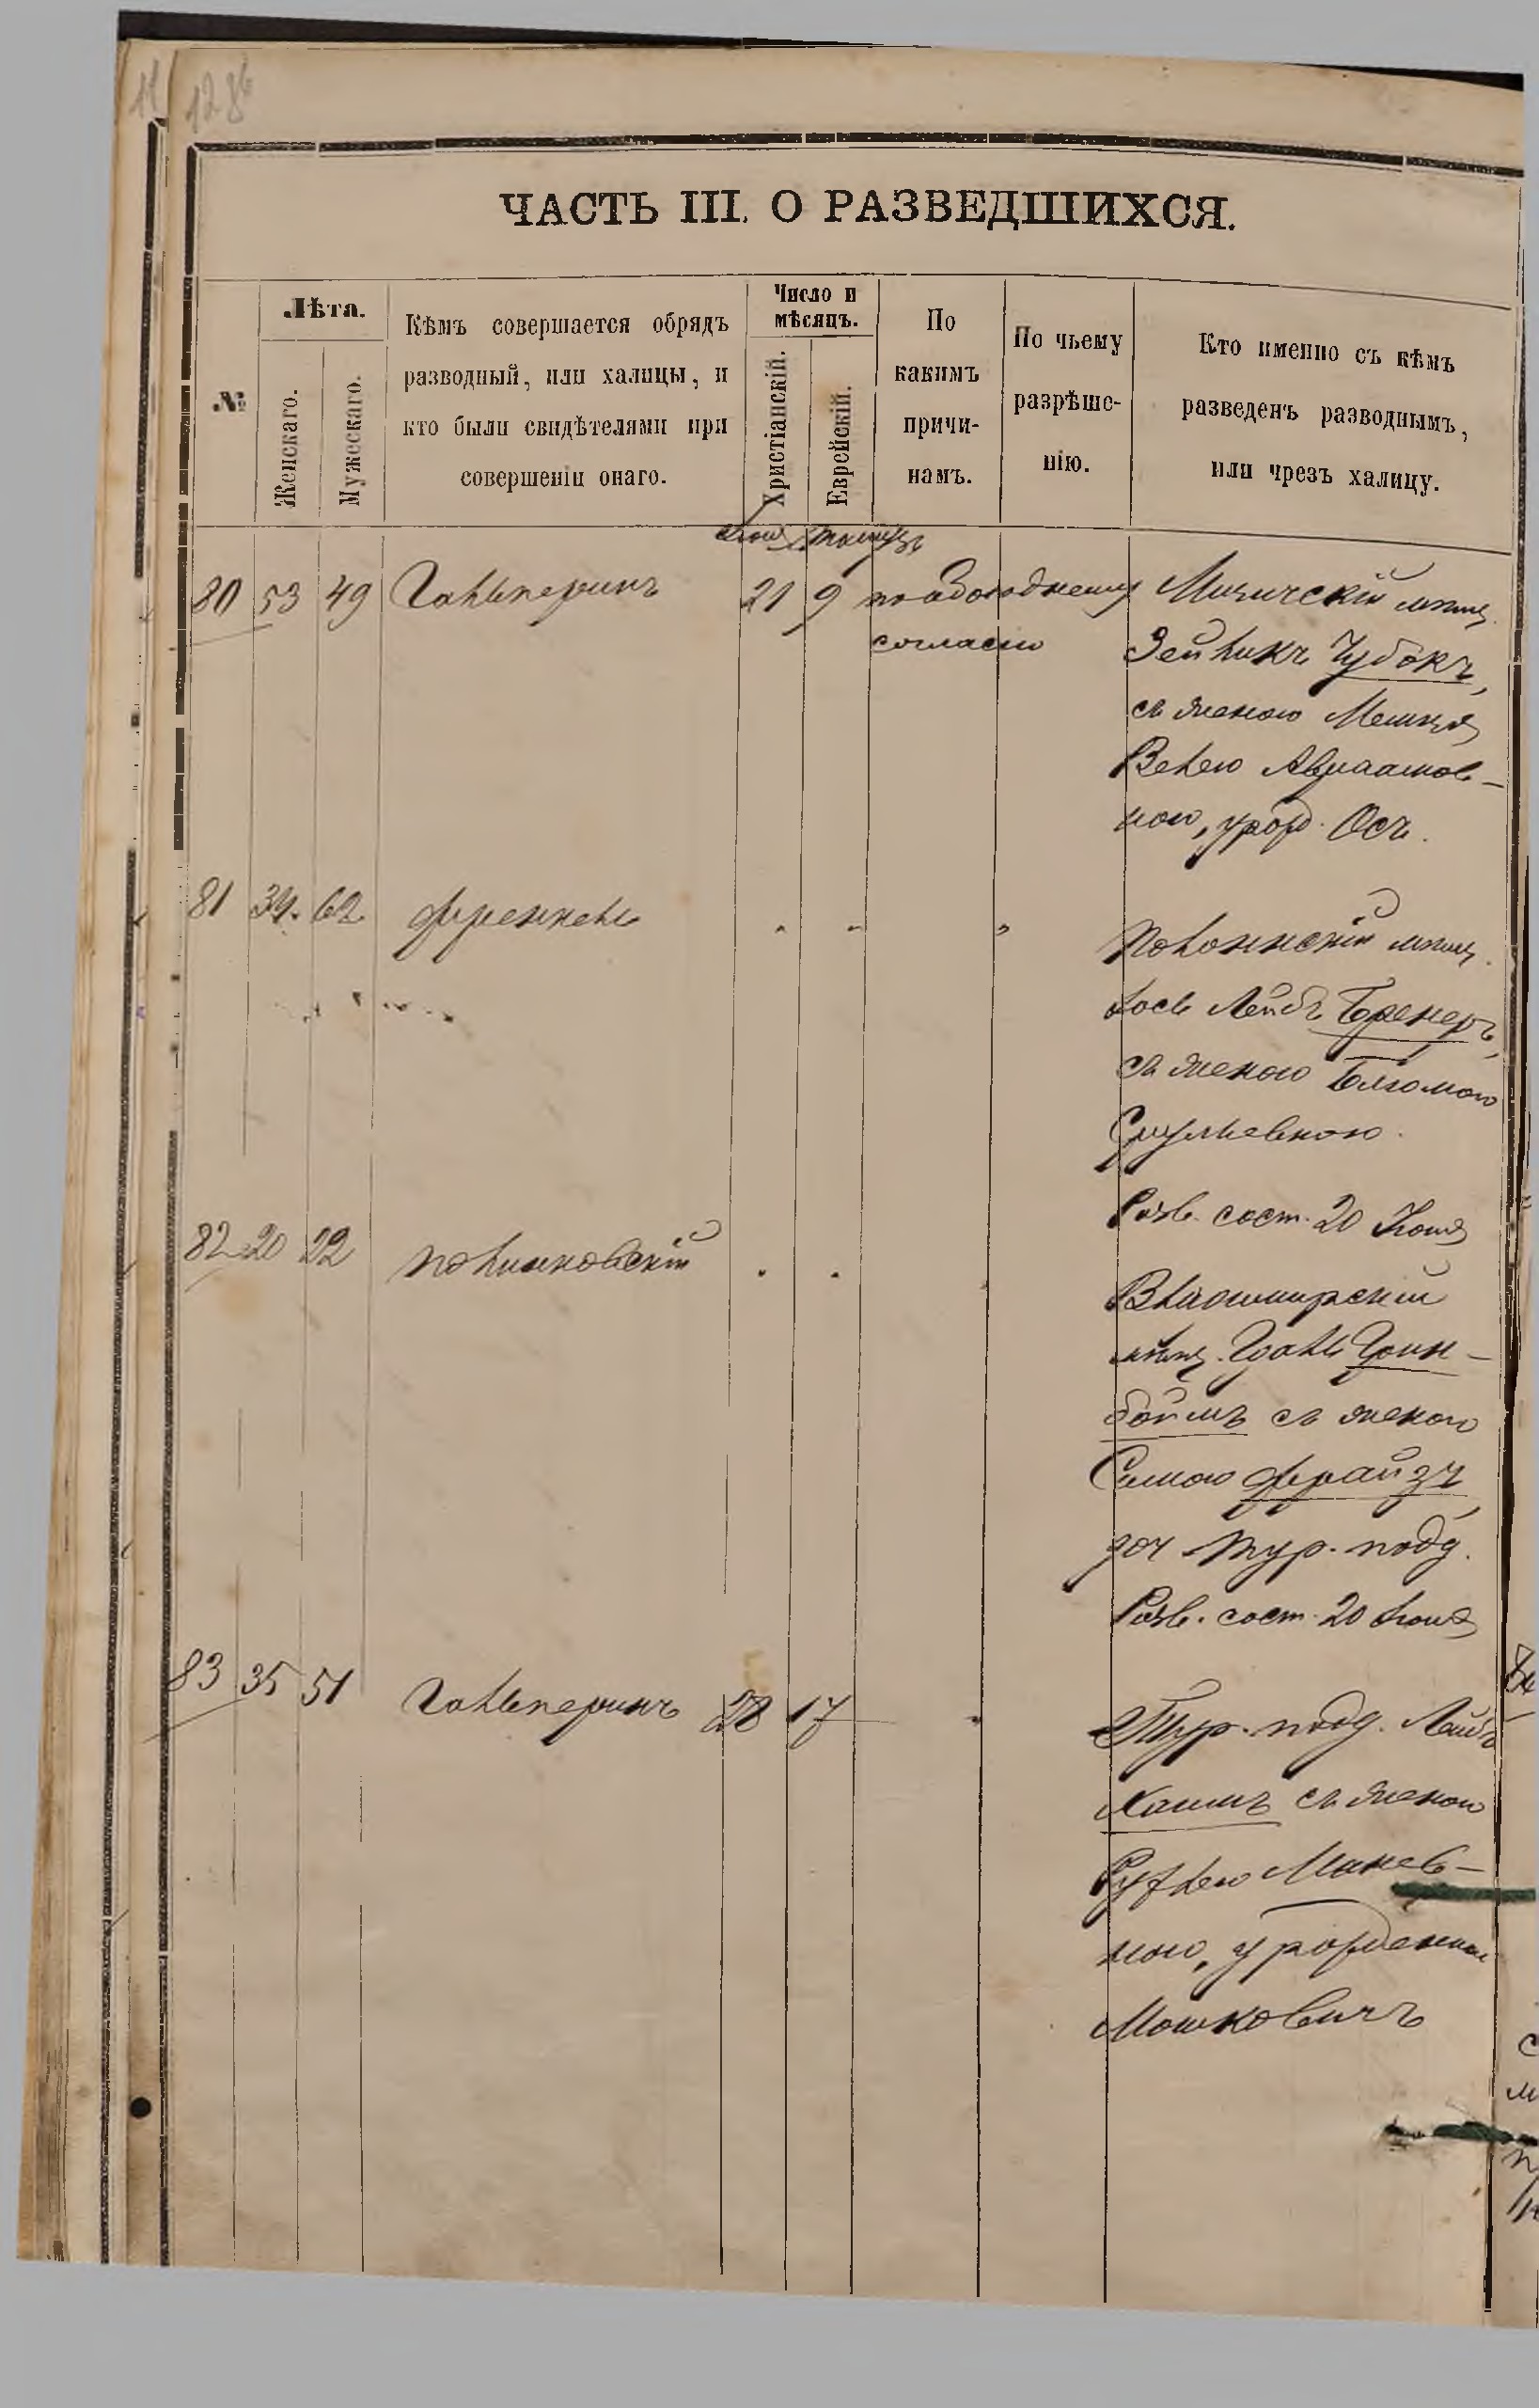 128
ЧАСТЬ III. О РАЗВЕДШИХСЯ.
№
Лѣта.
Женскаго.
Мужескаго.
Кѣмъ совершается обрядъ
разводный, или халицы, и
кто были свидѣтелями при
совершеніи онаго.
Число и
мѣсяцъ.
Христіанскій.
Еврейскій.
По
какимъ
причи-
намъ.
По чьему
разрѣше-
нію.
Кто именно съ кѣмъ
разведенъ разводнымъ,
или чрезъ халицу.
Іюня Тамузъ
80 53 49 Гальперинъ 21 9 по обоюдному
согласію
мѣщ.
Зейликъ Чубокъ,
съ женою
Велею Авраамов-
ною, урожд.
81 34. 62 Френкель
Полонскій мѣщ.
Іось Лейбъ Бренеръ,
съ женою Блюмою
Сруліевною.
Разв. сост. 20 Іюня
82 20 22 Полинковскій
Владимирскій
мѣщ. Грин-
боймъ съ женою
Симою Фрайзъ,
доч тур. подд.
Разв. сост. 20 Іюня
83 35 51 Гальперинъ 28 17
Тур. подд. Лейбъ
Хаимъ съ женою
Рухлею Манев-
ною, урожденная
Мошковичъ